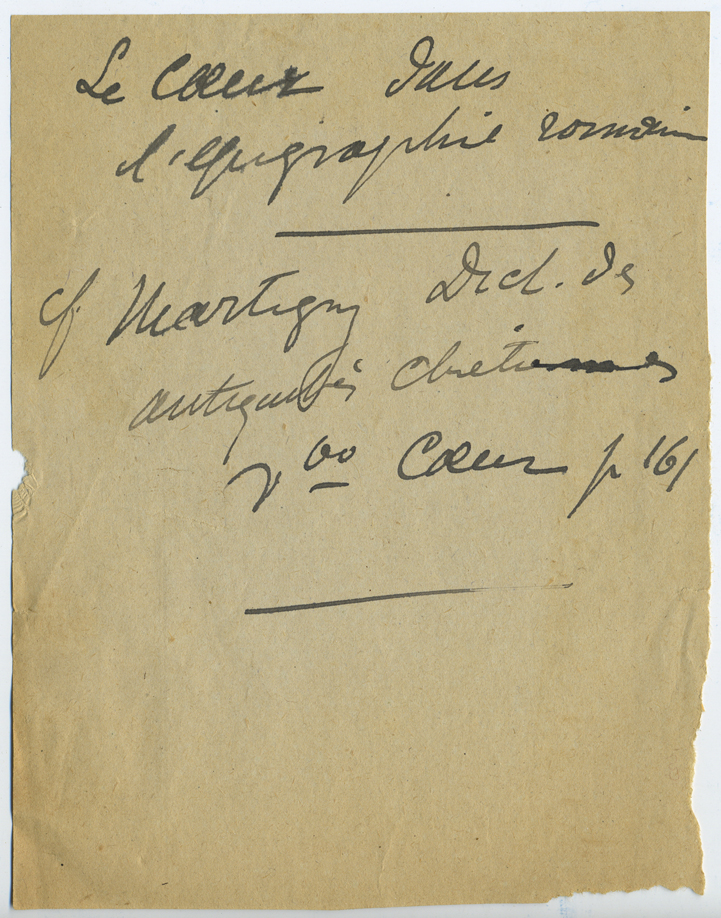 Le Cœur dans
l'épigraphie romain
cf Martigny Dict. des
antiquités chrétiennes
v° Cœur p 161